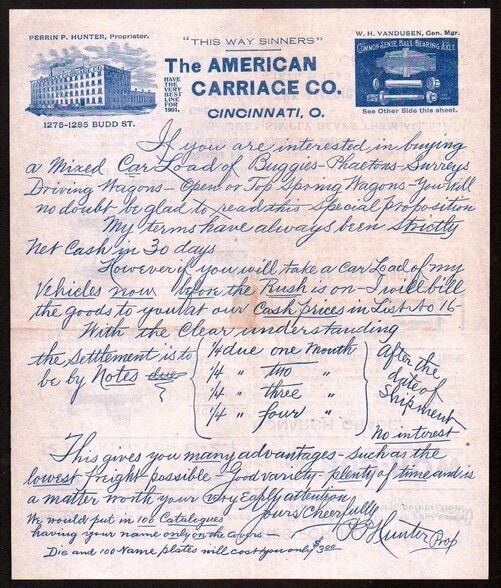 PERRIN P. HUNTER, Proprietor.
"THIS WAY SINNERS"
W. H. VANDUSEN, Gen. Mgr.
The AMERICAN
CARRIAGE CO.
CINCINNATI, O.
HAVE
THE
VERY
BEST
LINE
FOR
1901.
COMMON SENSE BALL BEARING AXLE
1275-1285 BUDD ST.
See Other Side this sheet.
If you are interested in buying
a Mixed Car Load of Buggies - Phaetons - Surreys
Driving Wagons - Open or Top Spring Wagons - You will
no doubt be glad to read this special proposition
My terms have always been Strictly
Net Cash in 30 days
However if you will take a Car Load of my
Vehicles now before the Rush is on - I will bill
the goods to you at our Cash prices in List No 16 -
With the Clear understanding
the Settlement is to
be by Notes due
1/4 due one Month
1/4 " two "
1/4 " three "
1/4 " four "
After the
date of
Shipment
No interest
This gives you many advantages - such as the
lowest freight possible - Good variety - plenty of time and is
a matter worth your very Early attention
Yours Cheerfully
PP Hunter Prop
We would put in 100 Catalogues
having your name only on the covers -
Die and 100 Name plates will cost you only $3.00